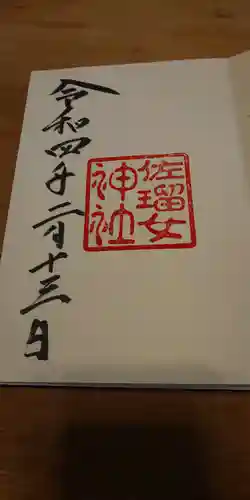 佐瑠女
神社
令和四年二月十三日